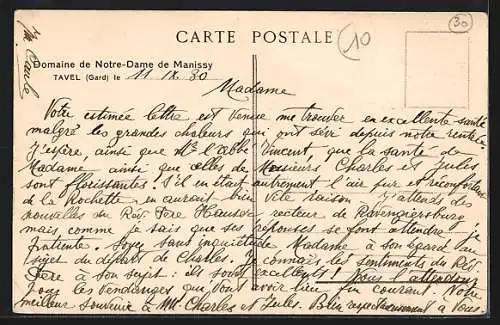 CARTE POSTALE
30
10
Domaine de Notre-Dame de Manissy
TAVEL (Gard) le 11 IX 30
Madame
Votre estimée lettre est venue me trouver en excellente santé
malgré les grandes chaleurs qui ont sévi depuis notre rentrée.
J'espère, ainsi que Mr l'abbé Vincent, que la santé de
Madame ainsi que celles de Messieurs Charles et Jules
sont florissantes! S'il en était autrement l'air pur et réconfortant
de la Rochette en aurait bien vite raison — J'attends des
nouvelles du Rév. Père Hauser recteur de Ravengiersburg
mais comme je sais que ses réponses se font attendre, je
patiente. Soyez sans inquiétude Madame à son égard au
sujet du départ de Charles. Je connais les sentiments du Rév.
Père à son sujet: ils sont excellents! Nous l'attendons
pour les vendanges qui vont avoir lieu fin courant. Notre
meilleur souvenir à MM. Charles et Jules. Bien respectueusement à Vous